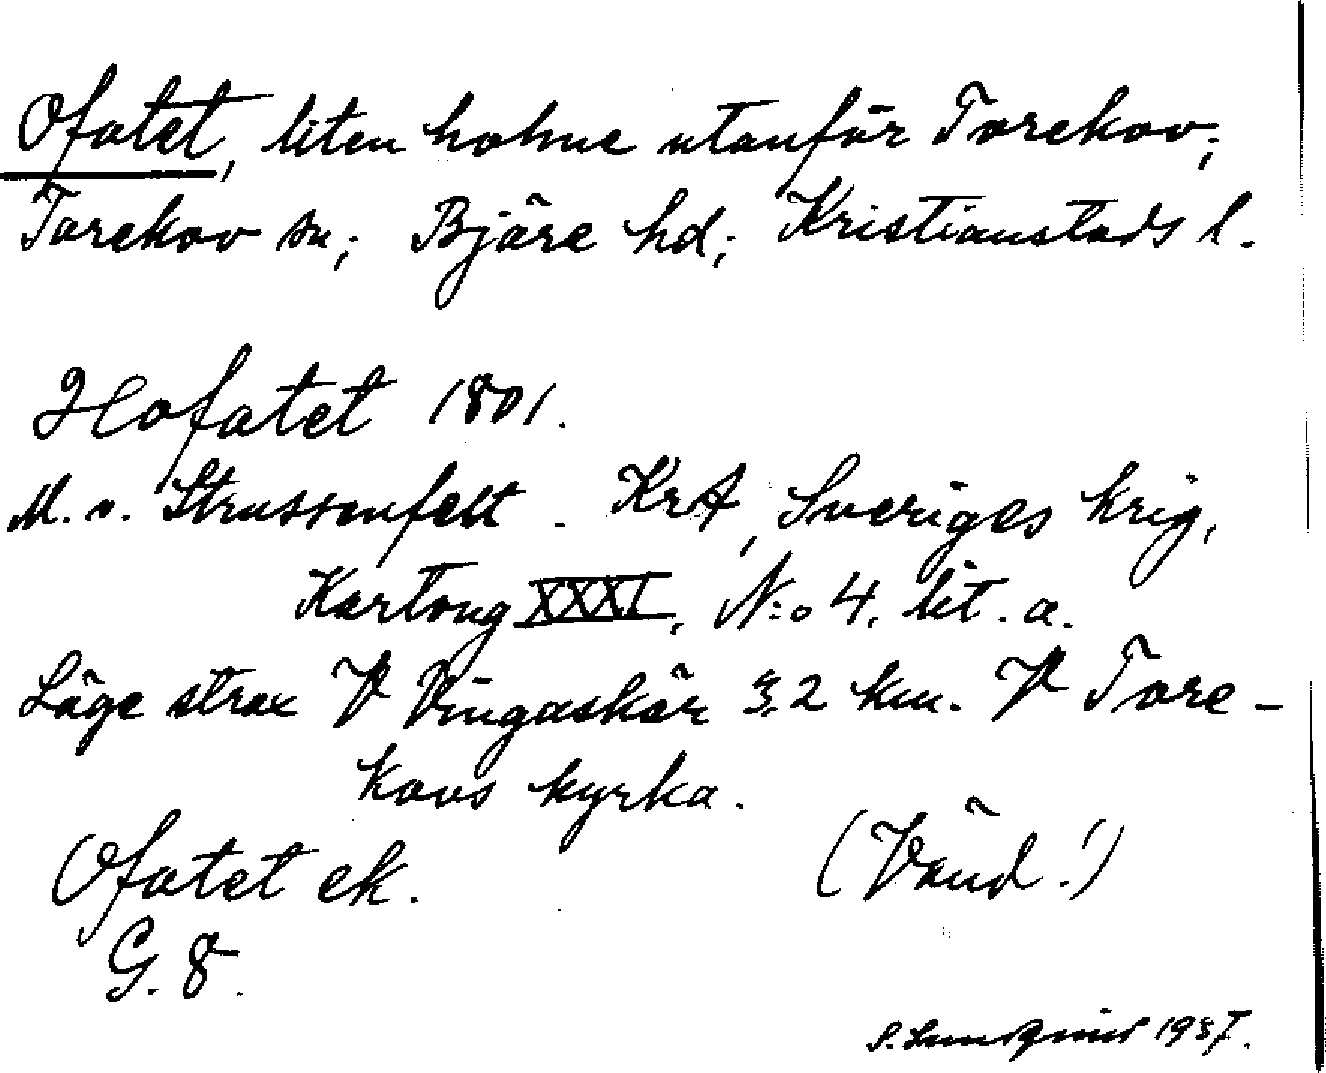 Ofatet, liten holme utanför Torekov;
Torekov sn; Bjäre hd; Kristianstads l.
Hofatet 1801.
M. v. Strussenfelt. KrA, Sveriges krig,
Kartong XXXI, N:o 4. lit. a.
Läge strax V Vingaskär 3,2 km. V Tore-
kovs kyrka.
Ofatet ek. (Vänd!)
G. 8.
S. Lundquist 1937.